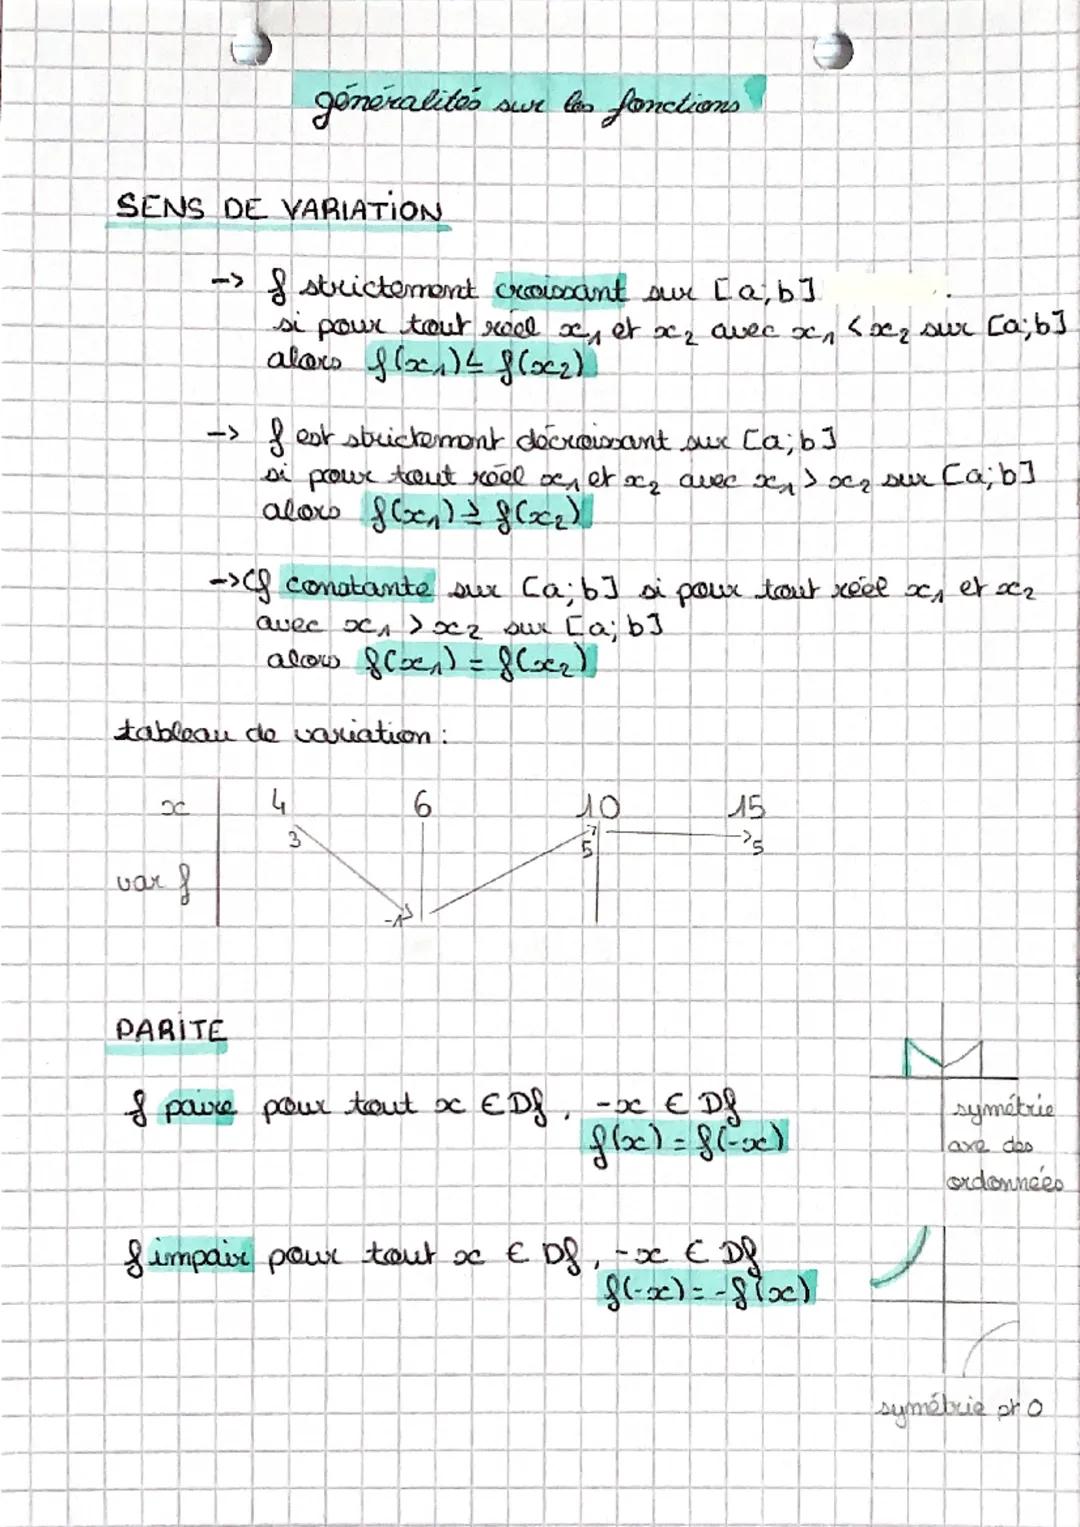 généralités sur les fonctions
SENS DE VARIATION
-> f strictement croissant sur [a;b]
si pour tout réel x₁ et x₂ avec x₁ < x₂ sur [a;b]
alors f(x₁) ≤ f(x₂)
-> f est strictement décroissant sur [a;b]
si pour tout réel x₁ et x₂ avec x₁ > x₂ sur [a;b]
alors f(x₁) ≥ f(x₂)
-> f constante sur [a;b] si pour tout réel x₁ et x₂
avec x₁ > x₂ sur [a;b]
alors f(x₁) = f(x₂)
tableau de variation :
x 4 6 10 15
3 5 5
var f
-1
PARITE
f paire pour tout x ∈ Df, -x ∈ Df
f(x) = f(-x)
symétrie
axe des
ordonnées
f impair pour tout x ∈ Df, -x ∈ Df
f(-x) = -f(x)
symétrie pt O